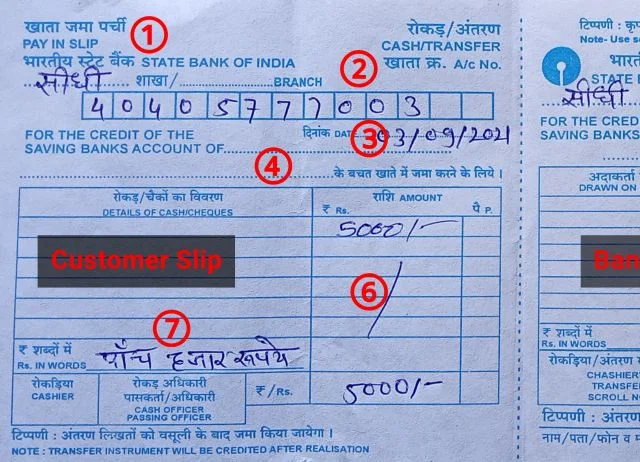 खाता जमा पर्ची ①
PAY IN SLIP
रोकड़/अंतरण
CASH/TRANSFER
भारतीय स्टेट बैंक STATE BANK OF INDIA
② खाता क्र. A/c No.
सीधी शाखा/ BRANCH
4 0 4 0 5 7 7 7 0 0 3
FOR THE CREDIT OF THE
दिनांक DATE ③ 03/09/2021
SAVING BANKS ACCOUNT OF
④ के बचत खाते में जमा करने के लिये ।
रोकड़/चैकों का विवरण
DETAILS OF CASH/CHEQUES
राशि AMOUNT
₹ Rs. पै P.
5000/-
Customer Slip
⑥
⑦
₹ शब्दों में
Rs. IN WORDS
पाँच हजार रूपये
रोकड़िया
CASHIER
रोकड़ अधिकारी
पासकर्ता/अधिकारी
CASH OFFICER
PASSING OFFICER
₹/Rs.
5000/-
टिप्पणी : अंतरण लिखतों को वसूली के बाद जमा किया जायेगा ।
NOTE : TRANSFER INSTRUMENT WILL BE CREDITED AFTER REALISATION
टिप्पणी :
Note- Use
STATE
सीधी
FOR THE CRED
SAVING BANKS
अदाकर्ता
DRAWN ON
Ban
₹ शब्दों में
Rs. IN WORDS
रोकड़िया/अंतरण
CHASHIER
TRANSFE
SCROLL N
टिप्पणी : अंतर
नाम/पता/फोन व म